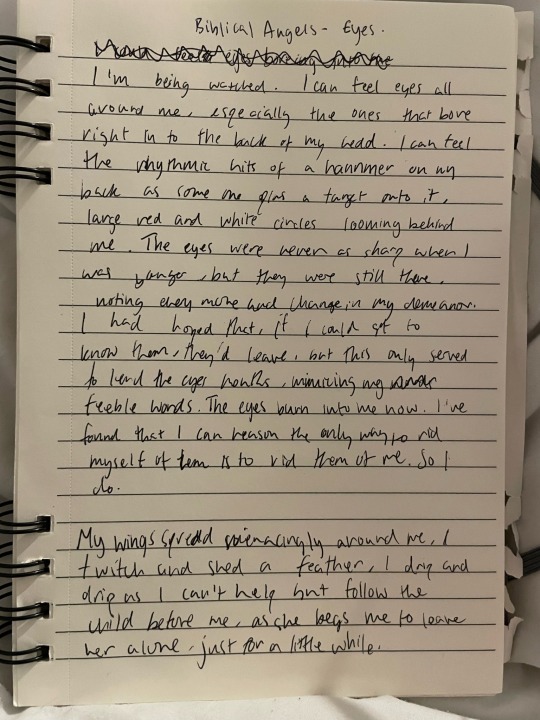 Biblical Angels - Eyes.
I'm being watched. I can feel eyes all
around me, especially the ones that bore
right in to the back of my head. I can feel
the rhythmic hits of a hammer on my
back as some one pins a target onto it,
large red and white circles looming behind
me. The eyes were never as sharp when I
was younger, but they were still there,
noting every move and change in my demeanor.
I had hoped that, if I could get to
know them, they'd leave, but this only served
to lend the eyes mouths, mimicing my
feeble words. The eyes burn into me now. I've
found that I can reason the only way to rid
myself of them is to rid them of me. So I
do.
My wings spread menacingly around me, I
twitch and shed a feather, I drip and
drip as I can't help but follow the
child before me, as she begs me to leave
her alone, just for a little while.